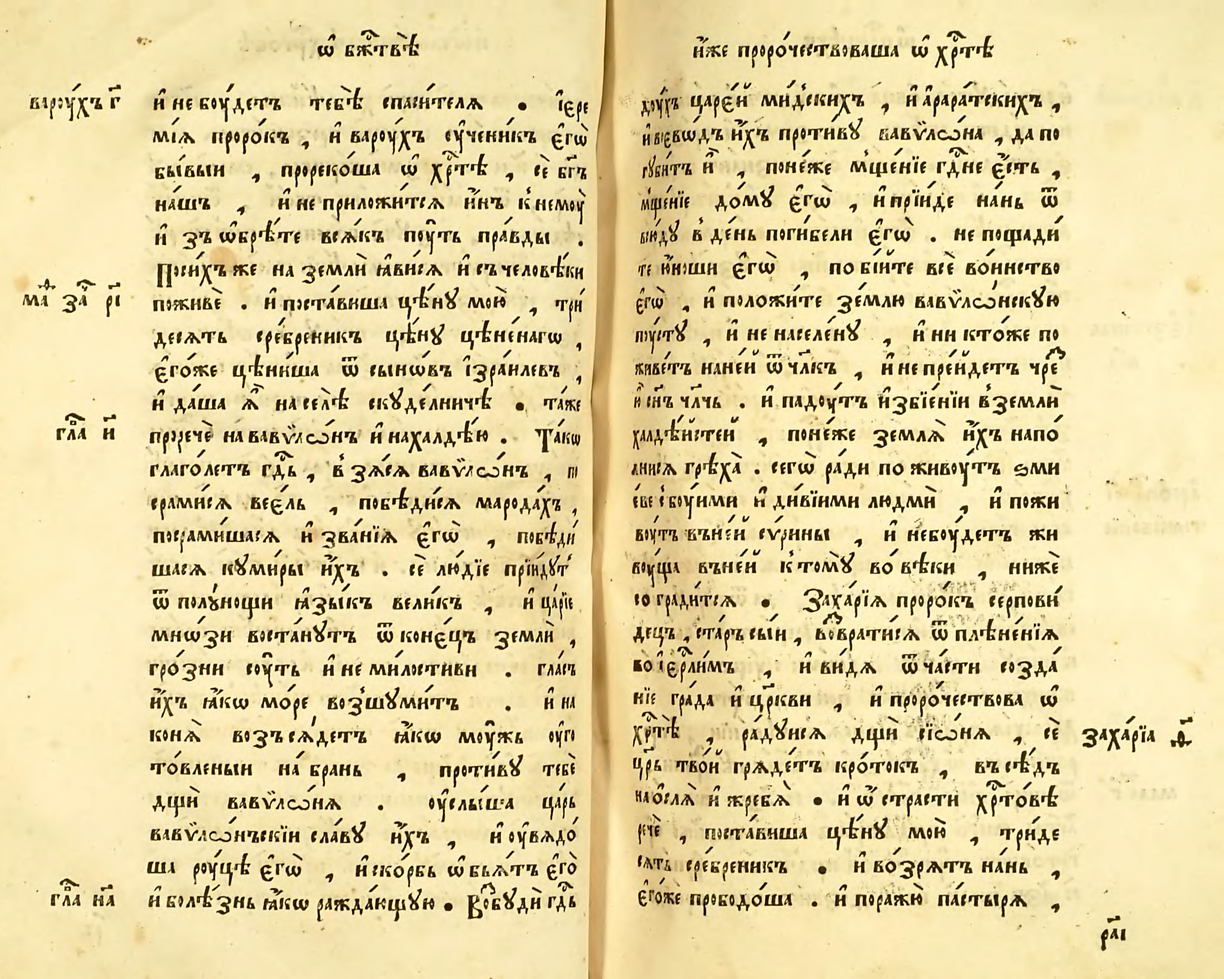 ѡ҆ бж҇твѣ
варꙋ́хъ г҃
и҆ не бꙋ́детъ тебѣ̀ спаси́телѧ . і҆ере
мі́ѧ проро́къ , и҆ варꙋ́хъ ᲂу҆ченикъ є҆гѡ̀
бы́выи , прореко́ша ѡ҆ хр҇тѣ̀ , сѐ бг҃ъ
на́шъ , и҆ не приложи́тсѧ и҆́нъ к немꙋ̀
и҆ зъ ѡ҆брѣ́те всѧ́къ пꙋ́ть пра́вды .
Поси́хъ же на землѝ ꙗ҆ви́сѧ и҆ съ человѣ́ки
ма҇ѳ за҇ч рі҃
поживѐ . и҆ поста́виша цѣ́нꙋ мою̀ , три́
десѧть сре́бреникъ цѣ́нꙋ цѣне́нагѡ ,
є҆го́же цѣни́ша ѿ сынѡ́въ і҆зра́илевъ ,
и҆ да́ша ѧ҆̀ на селѣ̀ скꙋде́лничѣ . та́же
гл҇ва н҃
проречѐ на вавѷлѡ́нъ и҆ на халде́ю . Та́кѡ
глаго́летъ гд҇ь , в зѧ́сѧ вавѷлѡ́нъ , по
срами́сѧ вее́ль , побѣди́сѧ марода́хъ ,
посрами́шасѧ и҆ зва́нїѧ є҆гѡ̀ , побѣди́
шасѧ кꙋми́ры и҆́хъ . сѐ лю́дїе прїи́дꙋтъ
ѿ полꙋ́нощи ꙗ҆зы́къ вели́къ , и҆ ца́рїе
мно́зи воста́нꙋтъ ѿ коне́цъ землѝ ,
гро́зни сꙋ́ть и҆ не ми́лостиви . гла́съ
и҆́хъ ꙗ҆́кѡ мо́ре возшꙋми́тъ . и҆ на
конѧ̀ возъсѧ́детъ ꙗ҆́кѡ мꙋ́жь ᲂу҆го
то́вленыи на́ брань , проти́вꙋ тебѐ
дщѝ вавѷлѡ́нѧ . ᲂу҆слы́ша ца́рь
вавѷлѡ́нъскїи сла́вꙋ и҆́хъ , и҆ ᲂу҆вѧдо́
ша рꙋ́цѣ є҆гѡ̀ , и҆ ско́рбь ѡ҆бьѧ́тъ є҆го̀
гл҇ва на҃
и҆ болѣ́знь ꙗ҆́кѡ ражда́ющꙋю . Во҇збꙋди гд҇ь
и҆́же проро́чествоваша ѡ҆ хр҇тѣ̀
дꙋ́хъ царе́й ми́дскихъ , и҆ арара́тскихъ ,
и҆ возве́дъ и҆́хъ проти́вꙋ вавѷлѡ́на , да по
гꙋби́тъ и҆̀ , поне́же мще́нїе гд҇не є҆́сть ,
мще́нїе до́мꙋ є҆гѡ̀ , и҆ прїи́де на́нь ѿ
всю́дꙋ в де́нь поги́бели є҆гѡ̀ . не пощади́
те ю҆́ноши є҆гѡ̀ , по бі́йте всѐ во́инство
є҆гѡ̀ , и҆ положи́те зе́млю вавѷлѡ́нскꙋю
пꙋ́стꙋ , и҆ не населе́нꙋ , и҆ ни кто́же по
живе́тъ на не́й ѿ чл҃къ , и҆ не пре́йдетъ чре҇з
и҆ сн҃ъ чл҃чь . и҆ падꙋ́тъ и҆збїе́нїи в землѝ
халде́йстей , поне́же землѧ̀ и҆́хъ напо́
лнисѧ грѣха̀ . сегѡ̀ ра́ди по живꙋ́тъ ѕми
еве с бꙋ́ими и҆ ди́вїими людмѝ , и҆ пожи
вꙋ́тъ въ не́й сѷрины , и҆ небꙋ́детъ жи
вꙋ́ща въ не́й к томꙋ̀ во́ вѣки , нижѐ
со гради́тсѧ . Заха́рїѧ проро́къ серпови́
децъ , ста́ръ сы́и , во҇звратисѧ ѿ плѣне́нїѧ
во і҆ер҇лимъ , и҆ ви́дѧ ѿ ча́сти созда́
нїе гра́да и҆ цр҃кви , и҆ проро́чествова ѡ҆
хр҇тѣ̀ , ра́дꙋисѧ дщѝ сїѡ́нѧ , сѐ
заха́рїа ѳ҃
цр҃ь тво́й грѧде́тъ кро́токъ , въ сѣ́дъ
на ослѧ̀ и҆ жребѧ̀ . и҆ ѡ҆ стра́сти хр҇то́вѣ
речѐ , поста́виша цѣ́нꙋ мою̀ , три́де
сѧть сре́бреникъ . и҆ во́зрѧтъ на́нь ,
є҆го́же прободо́ша . и҆ поражю̀ па́стырѧ ,
рл҃і